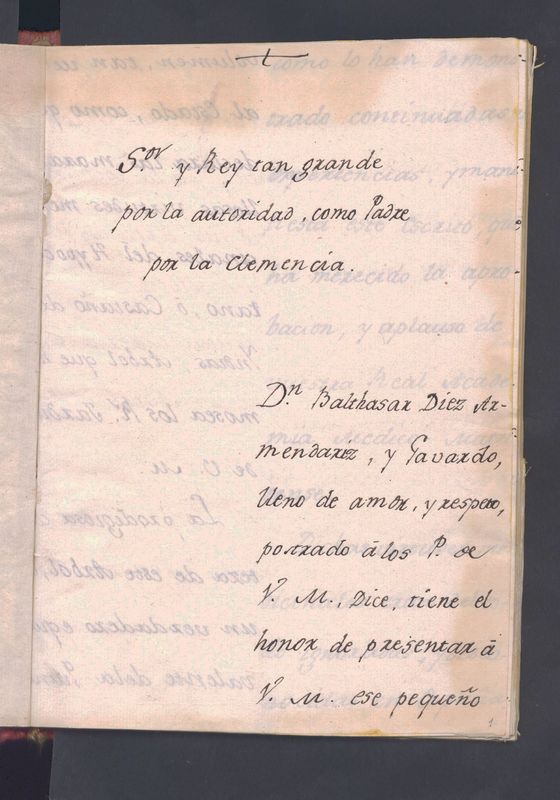 Sor. y Rey tan grande
por la autoridad, como Padre
por la Clemencia.
Dn. Balthasar Diez Ar-
mendariz, y Gavardo,
lleno de amor, y respeto,
postrado â los P. de
V. M., Dice, tiene el
honor de presentar â
V. M. ese pequeño
1